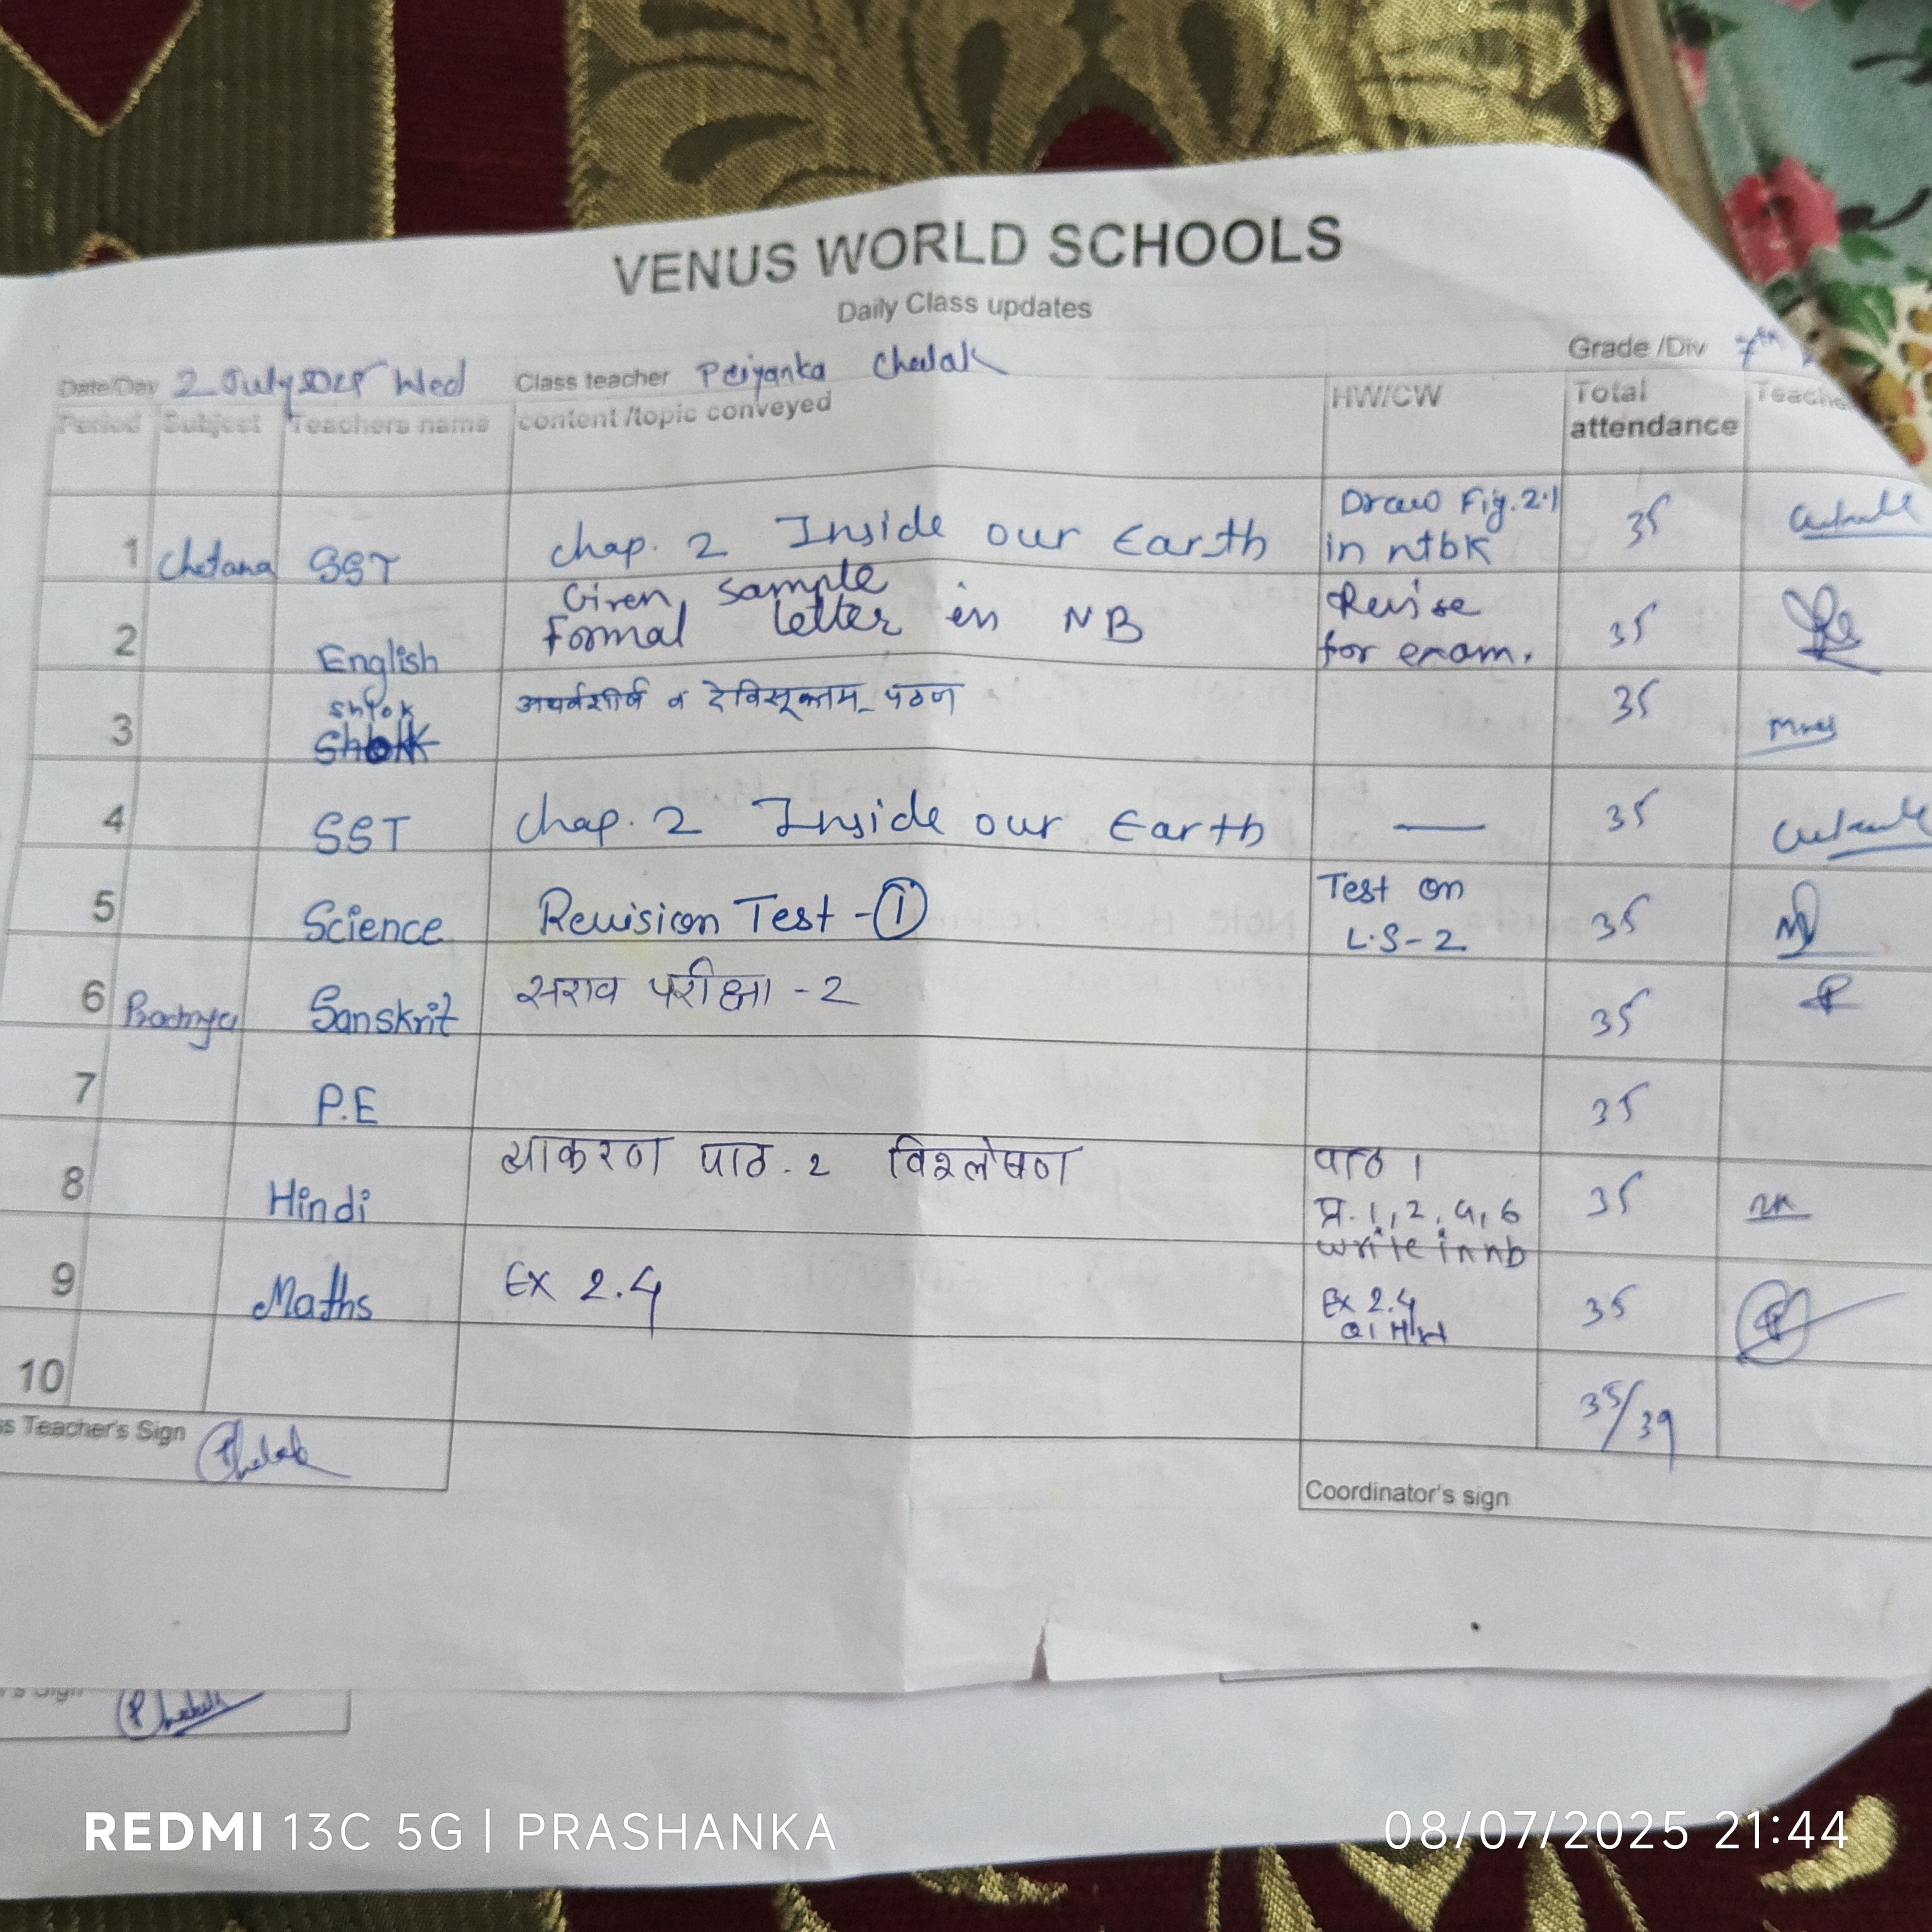 VENUS WORLD SCHOOLS
Daily Class updates
Grade /Div 7th
Date/Day 2 July Wed Class teacher Priyanka Chalak
Period Subject Teachers name content /topic conveyed HW/CW Total attendance
1 Chetana SST Chap. 2 Inside our Earth Draw Fig. 2.1 in ntbk 35
2 English Given sample Formal letter in NB Revise for exam. 35
3 Shlok अथर्वशीर्ष व देविसूक्तम पठण 35
4 SST Chap. 2 Inside our Earth — 35
5 Science Revision Test - 1 Test on L.S-2 35
6 Sanskrit सराव परीक्षा - 2 35
7 P.E 35
8 Hindi व्याकरण पाठ. 2 विश्लेषण पाठ 1 प्र. 1, 2, 4, 6 write in nb 35
9 Maths Ex 2.4 Ex 2.4 Q1 H/W 35
10 35/39
s Teacher's Sign Chalak
Coordinator's sign
REDMI 13C 5G | PRASHANKA 08/07/2025 21:44